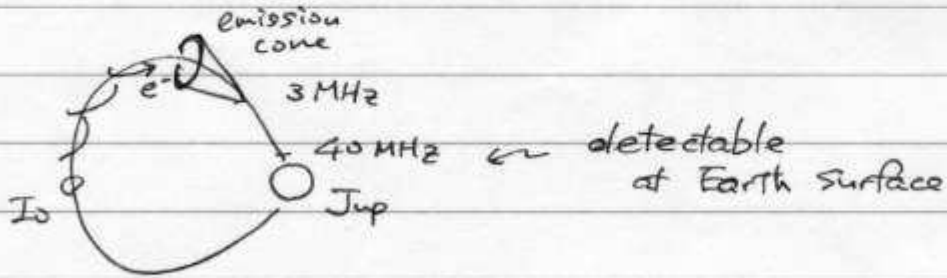 emission
cone
e-
3 MHz
40 MHz
detectable
at Earth surface
Io
Jup